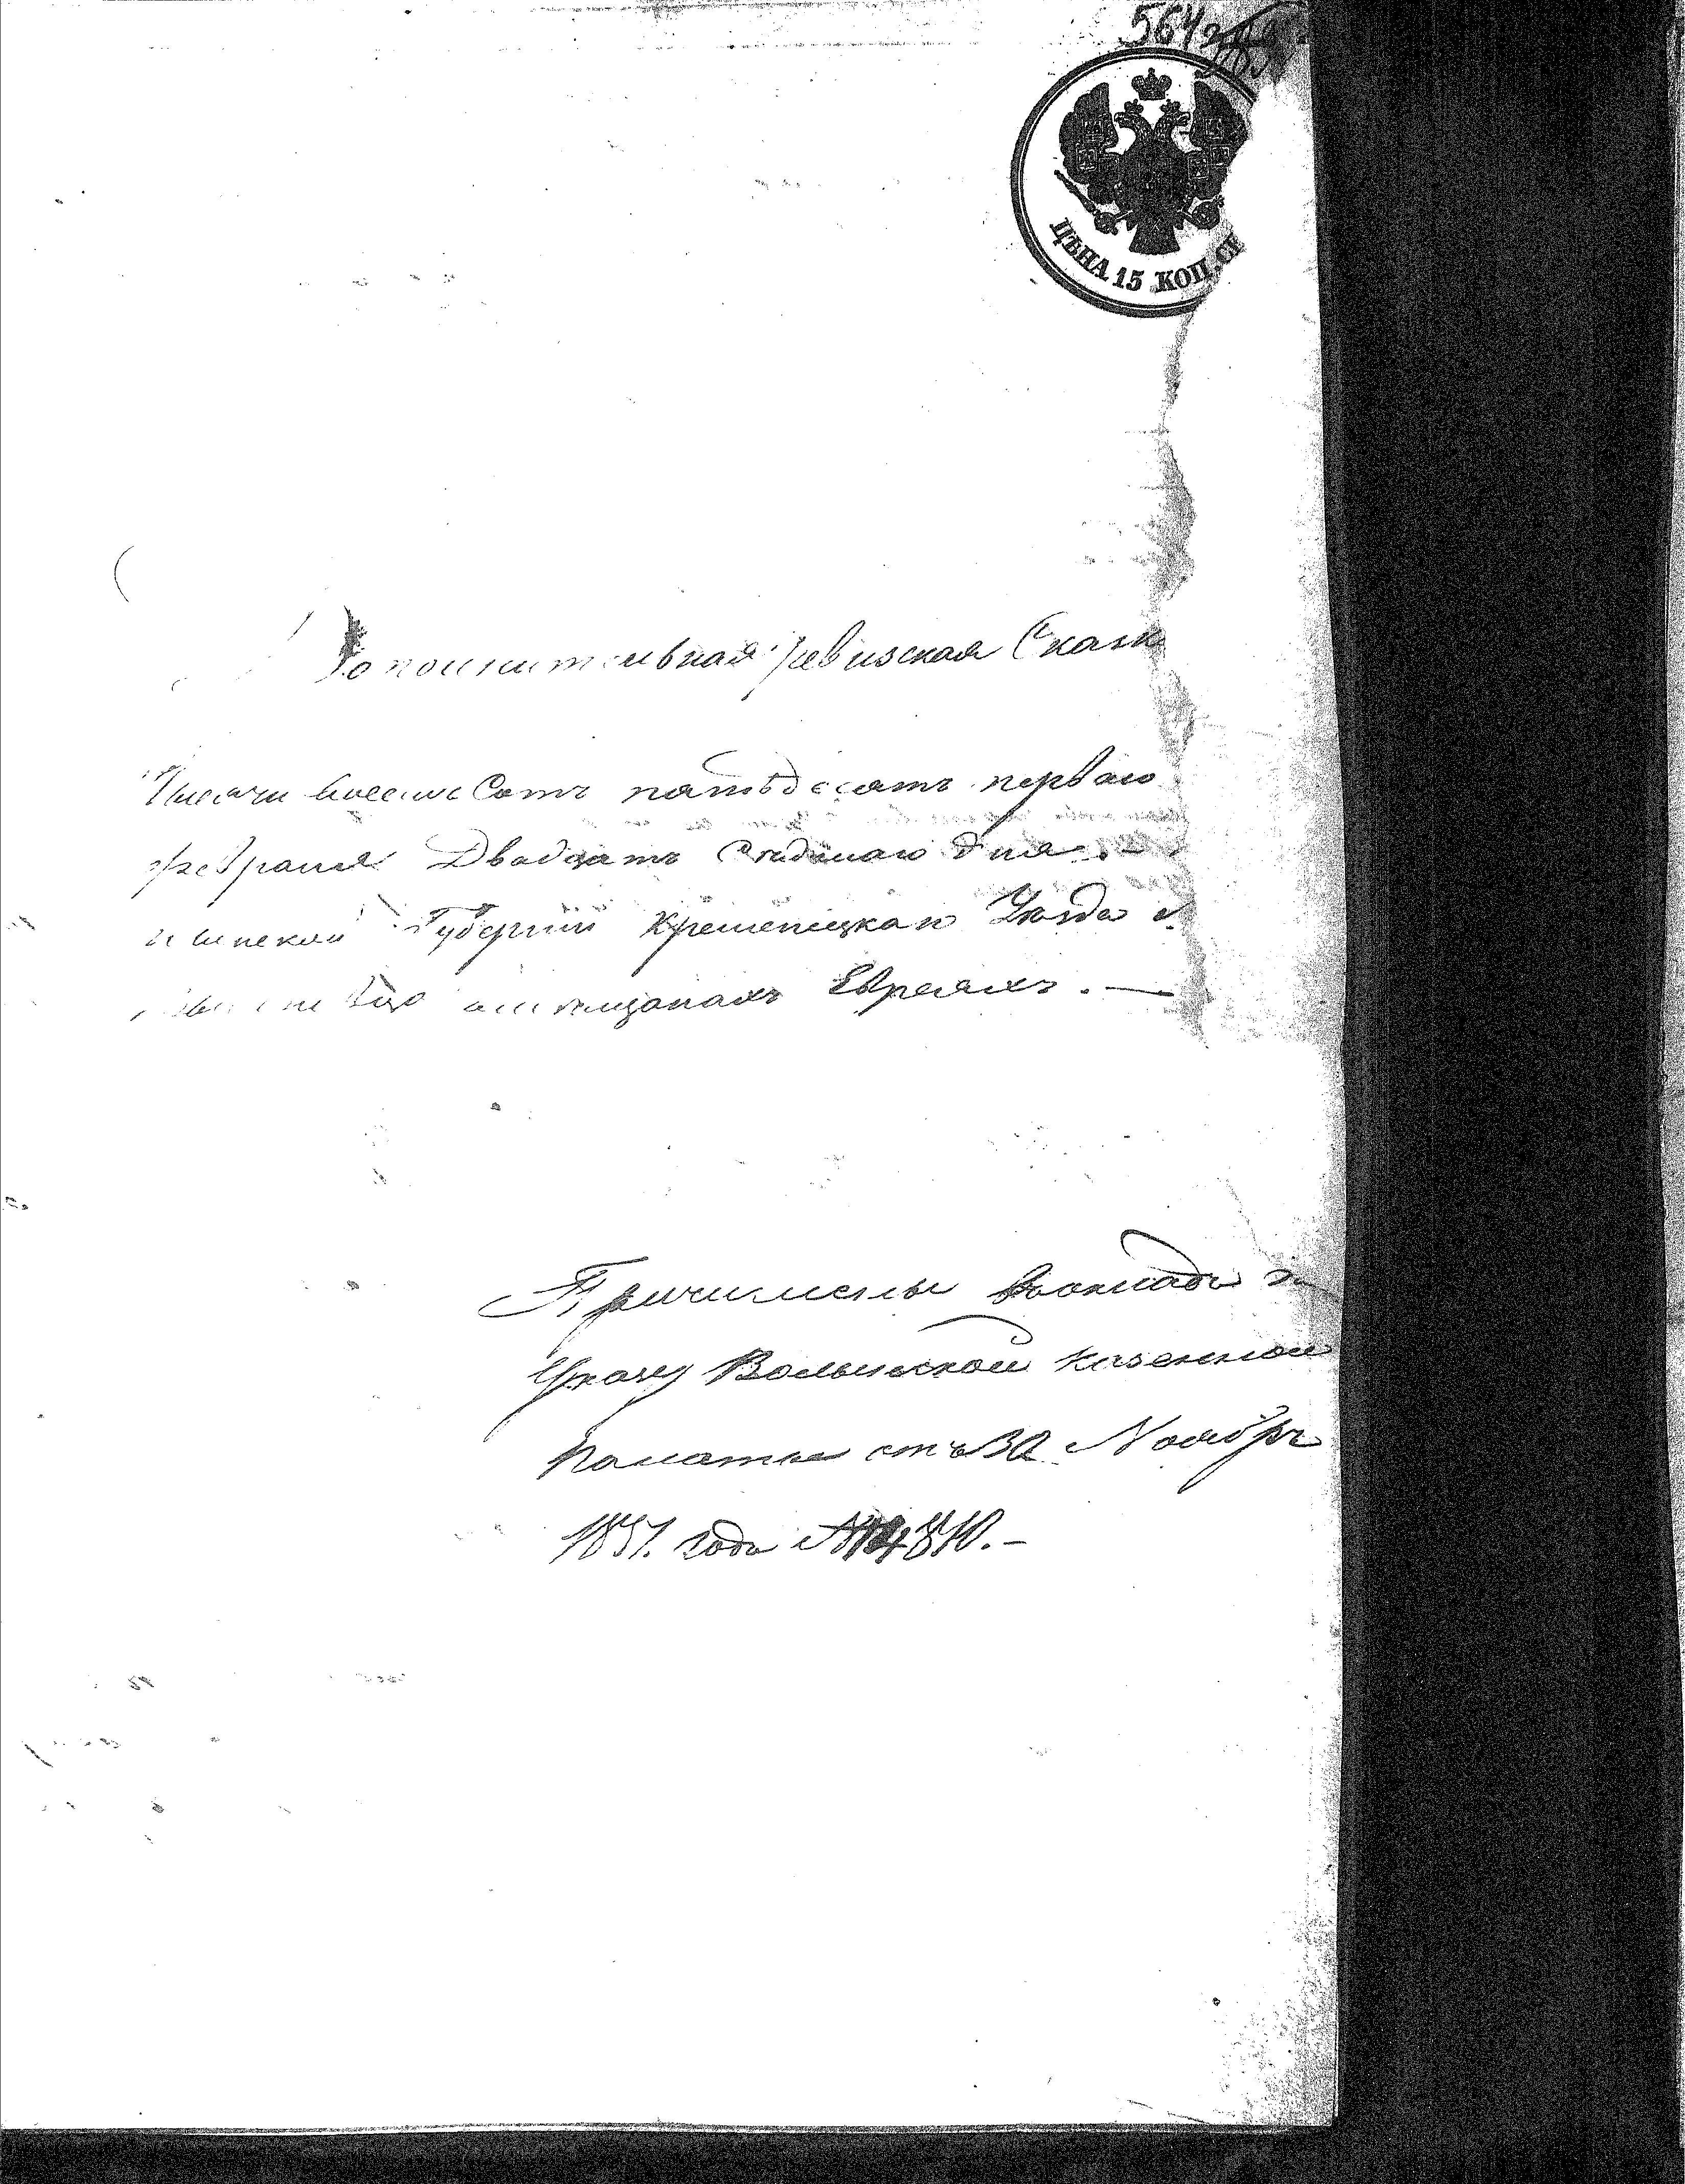 564
ЦѢНА 15 КОП. СЕ
Дополнительная ревизская Сказк
Тысячи восемь Сотъ пятьдесятъ перваго
февраля Двадцать Седьмаго дня
Губерніи Кременецкаго Уѣзда
мѣщанахъ Евреяхъ. —
Причислены въокладъ
Указу Волынской казенной
Палаты отъ 30 Ноябр
1851. года №